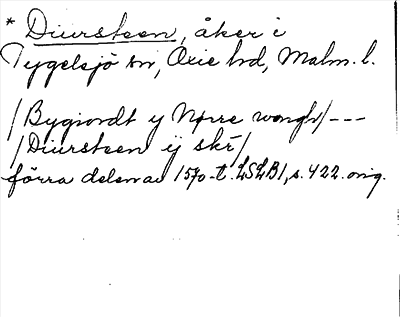 * Diursteen, åker i
Tygelsjö sn, Oxie hd, Malm. l.
/Bygiordt y Nørre wongh/---
/Diursteen ij skr/
förra delen av 1570-t. LSLB1, s. 422. orig.